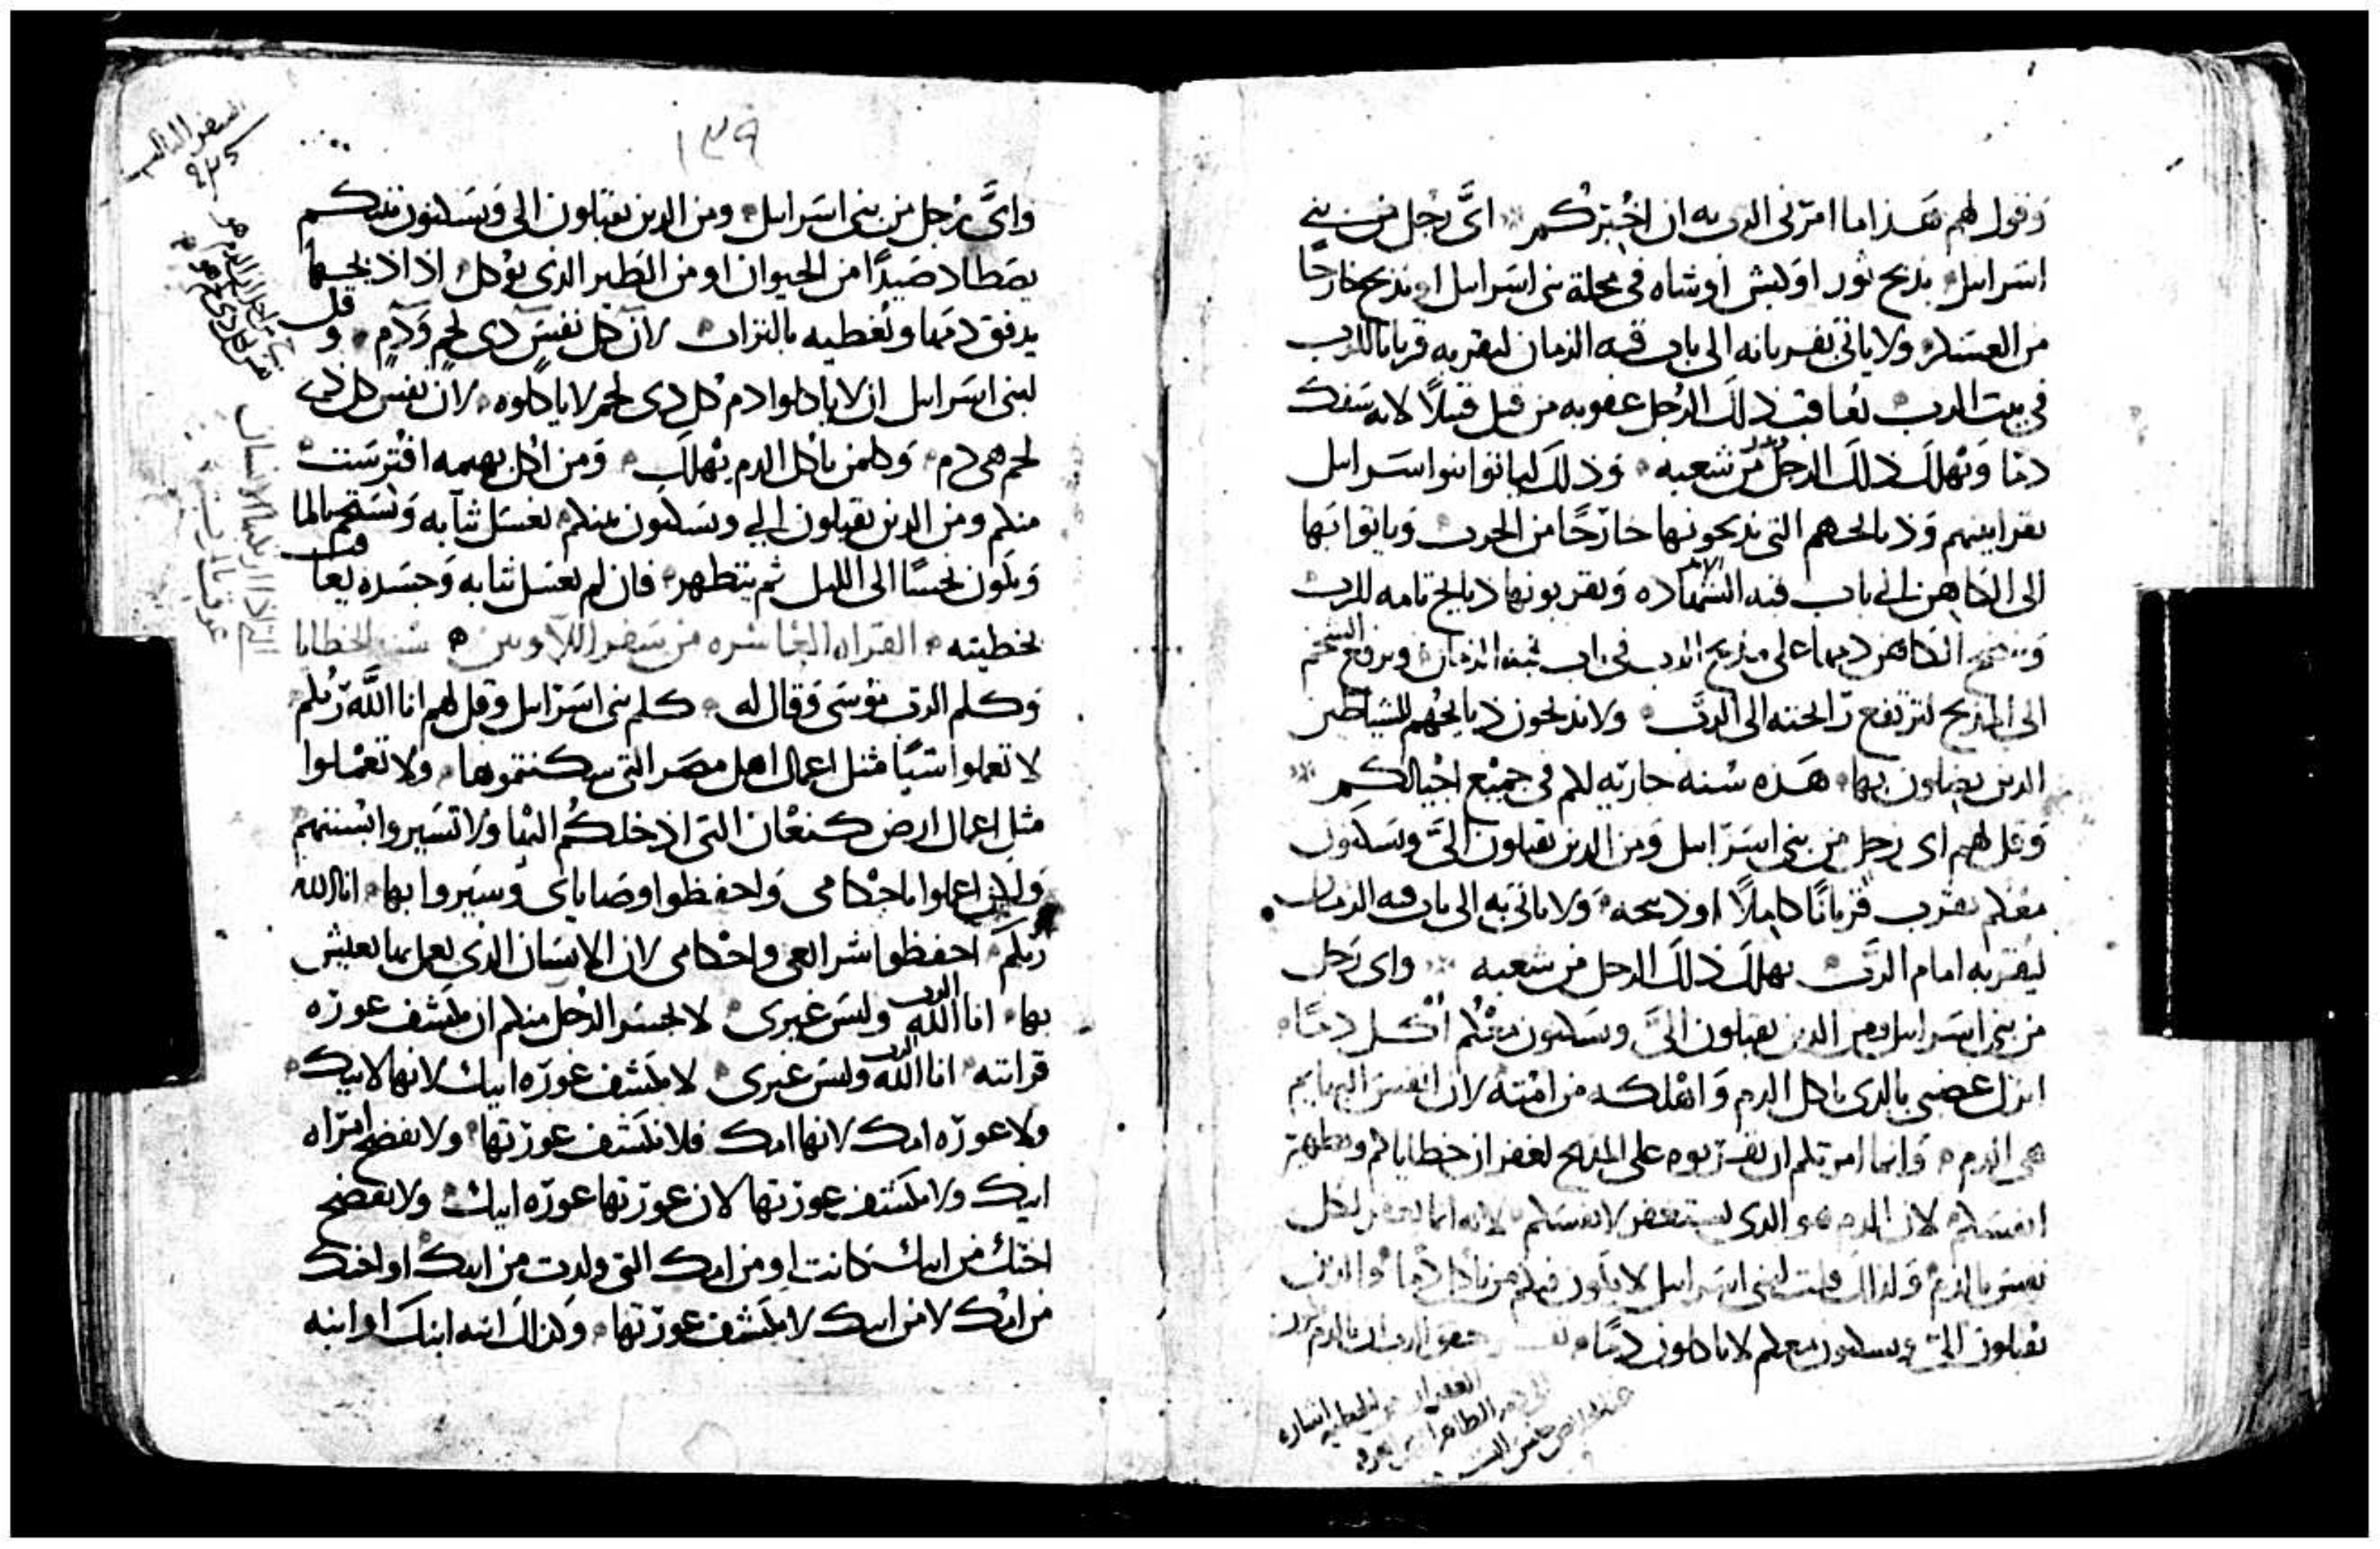 وقول لهم هذا ما امرني الرب به ان اخبركم اىّ رجل من بني
اسراىل يذبح ثور او كبش او شاه في محلة بني اسراىل او يذبح خارجا
من العسكر ولا ياتي بقربانه الى باب قبه الزمان ليقربه قربانا للرب
في بيت الرب يعاقب ذلك الرجل عقوبه من قتل قتيلا لانه سفك
دما ويهلك ذلك الرجل من شعبه وذلك لياتوا بنوا اسراىل
بقرابينهم وذبايحهم التي يذبحونها خارجًا من الحرب وياتوا بها
الى الكاهن الى باب قبه الشهاده ويقربونها ذبايح تامه للرب
وينضح الكاهن دمها على مذبح الرب في باب قبه الزمان ويرفع الشحم
الى المذبح لترتفع رايحته الى الرب ولا يذبحون ذبايحهم للشياطين
الذين يضلون بها هذه سنه جاريه لكم في جميع اجيالكم
وقل لهم اى رجل من بني اسراىل ومن الذين يقبلون الىّ ويسكنون
معكم يقرب قربانًا كاملًا او ذبيحه ولا ياتي به الى باب قبه الزمان
ليقربه امام الرب يهلك ذلك الرجل من شعبه واى رجل
من بني اسراىل ومن الذين يقبلون الىّ ويسكنون معكم اكل دمًا
انزل غضبي بالذى ياكل الدم واهلكه من امته لان انفس البهايم
هي الدم وانما امرتكم ان تقربوه على المذبح لغفران خطاياكم وتطهير
انفسكم لان الدم هو الذى يستغفر لانفسكم لانه انما يغفر لكل
نفس بالدم ولذلك قلت لبني اسراىل لا يكون فيكم من ياكل دما والذين
يقبلون الىّ ويسكنون معكم لا ياكلون دمًا
١٣٩
السفر الثالث
واىّ رجل من بني اسراىل ومن الذين يقبلون الى ويسكنون بينكم
يصطاد صيدًا من الحيوان او من الطير الذى يوكل اذا ذبحها
يدفق دمها ويغطيه بالتراب لان كل نفس دى لحم ودم وقل
لبني اسراىل ان لا ياكلوا دم كل دى لحم لا ياكلوه لان نفس كل دى
لحم هي دم وكلمن ياكل الدم يهلك ومن اكل بهيمه افترست
منكم ومن الذين يقبلون الي ويسكنون بينكم يغسل ثيابه ويستحم بالما
ويكون نجسًا الى الليل ثم يتطهر فان لم يغسل ثيابه وجسده يعاقب
بخطيته القراه العاشره من سفر اللاويين الخطايا
وكلم الرب موسى وقال له كلم بني اسراىل وقل لهم انا الله ربكم
لا تعملوا شيًا مثل اعمال اهل مصر التي سكنتموها ولا تعملوا
مثل اعمال ارض كنعان التي ادخلكم اليها ولا تسيروا بسننهم
ولكن اعملوا باحكامي واحفظوا وصاياى وسيروا بها انا الله
ربكم احفظوا شرايعي واحكامي لان الانسان الذى يعمل بها يعيش
بها انا الله الرب وليس غيرى لا يجسر الرجل منكم ان يكشف عوره
قرابته انا الله الرب وليس غيرى لا تكشف عوره ابيك لانها لابيك
ولا عوره امك لانها امك فلا تكشف عورتها ولا تفضح امراه
ابيك ولا تكشف عورتها لان عورتها عوره ابيك ولا تفضح
اختك من ابيك كانت او من امك التي ولدت من ابيك او اختك
من امك لا من ابيك لا تكشف عورتها وكذلك ابنه ابنك او ابنه